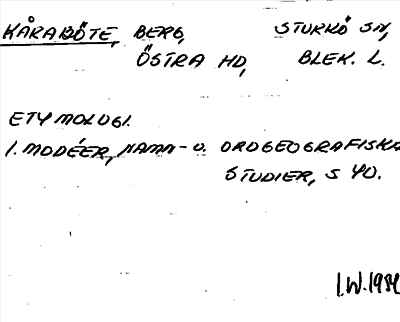 KÅRABÖTE, BERG, STURKÖ SN,
ÖSTRA HD, BLEK. L.
ETYMOLOGI.
I. MODÉER, NAMN- O. ORDGEOGRAFISKA
STUDIER, S 40.
I.W. 1984